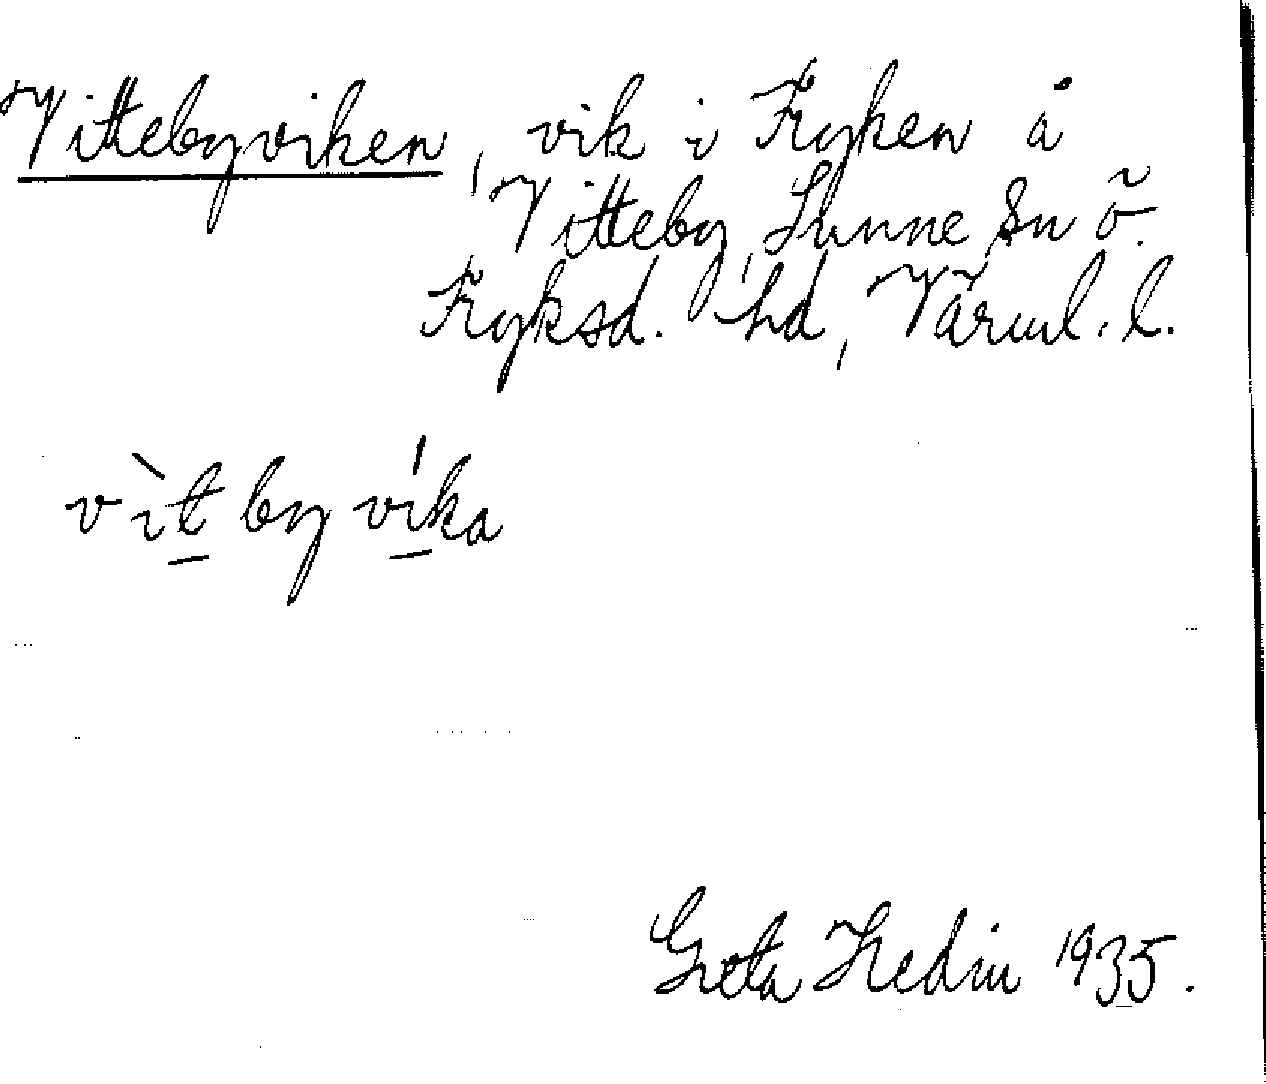 Vittebyviken, vik i Fryken å
Vitteby, Sunne sn ö.
Fryksd. hd, Värml. l.
vìt by víka
Greta Hedin 1935.